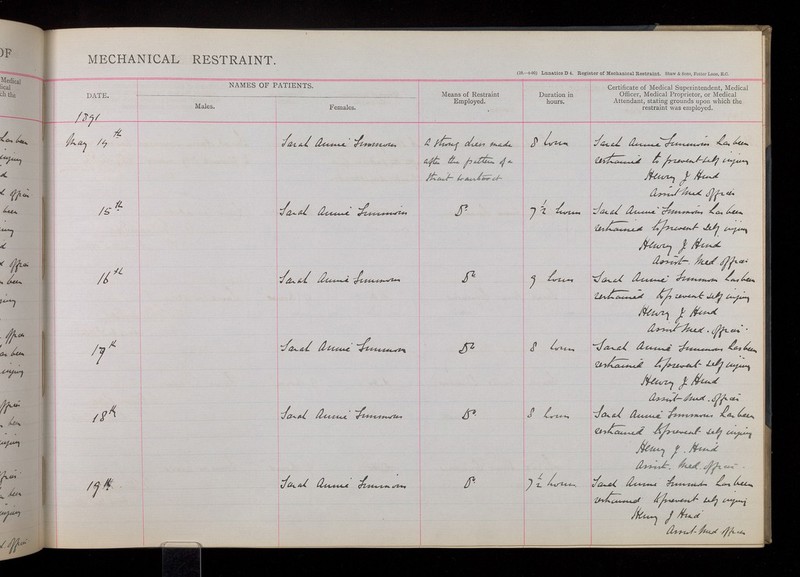 OF
MECHANICAL RESTRAINT.
Lunatics D 4. Register of Mechanical Restraint. Shaw & Sons, Fetter Lane, E.C.
Medical
ical
ch the
DATE.
NAMES OF PATIENTS.
Males.
Females.
Means of Restraint
Employed.
Duration in
hours.
Certificate of Medical Superintendent, Medical
Officer, Medical Proprietor, or Medical
Attendant, stating grounds upon which the
restraint was employed.
1891
May 14th
Sarah Annie Simmons
A strong dress made
after the pattern of a
strait waistcoat
8 hours
Sarah Annie Simmons has been
restrained to prevent self injury
Henry J Hind
Assist Med. Officer
15th
Sarah Annie Simmons
Do
7½ hours
Sarah Annie Simmons has been
restrained to prevent self injury
Henry J Hind
Assist. Med Officer
16th
Sarah Annie Simmons
Do
9 hours
Sarah Annie Simmons has been
restrained to prevent self injury
Henry J Hind
Assist Med. Officer
17th
Sarah Annie Simmons
Do
8 hours
Sarah Annie Simmons has been
restrained to prevent self injury
Henry J Hind
Assist Med. Officer
18th
Sarah Annie Simmons
Do
8 hours
Sarah Annie Simmons has been
restrained to prevent self injury
Henry J. Hind
Assist. Med Officer
19th
Sarah Annie Simmons
Do
7½ hours
Sarah Annie Simmons has been
restrained to prevent self injury
Henry J Hind
Assist. Med Officer